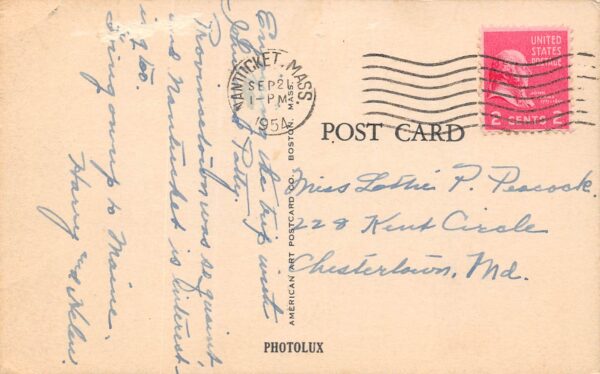 NANTUCKET, MASS.
SEP 21
1 PM
1954
UNITED
STATES
POSTAGE
2 CENTS 2
POST CARD
Miss Lottie P. Peacock.
228 Kent Circle
Chestertown, Md.
Enjoying the trip with
John and Patty.
Provincetown was so quaint
and Nantucket is interest-
ing too.
Going on up to Maine.
Harry and Helen.
AMERICAN ART POSTCARD CO., BOSTON, MASS.
PHOTOLUX